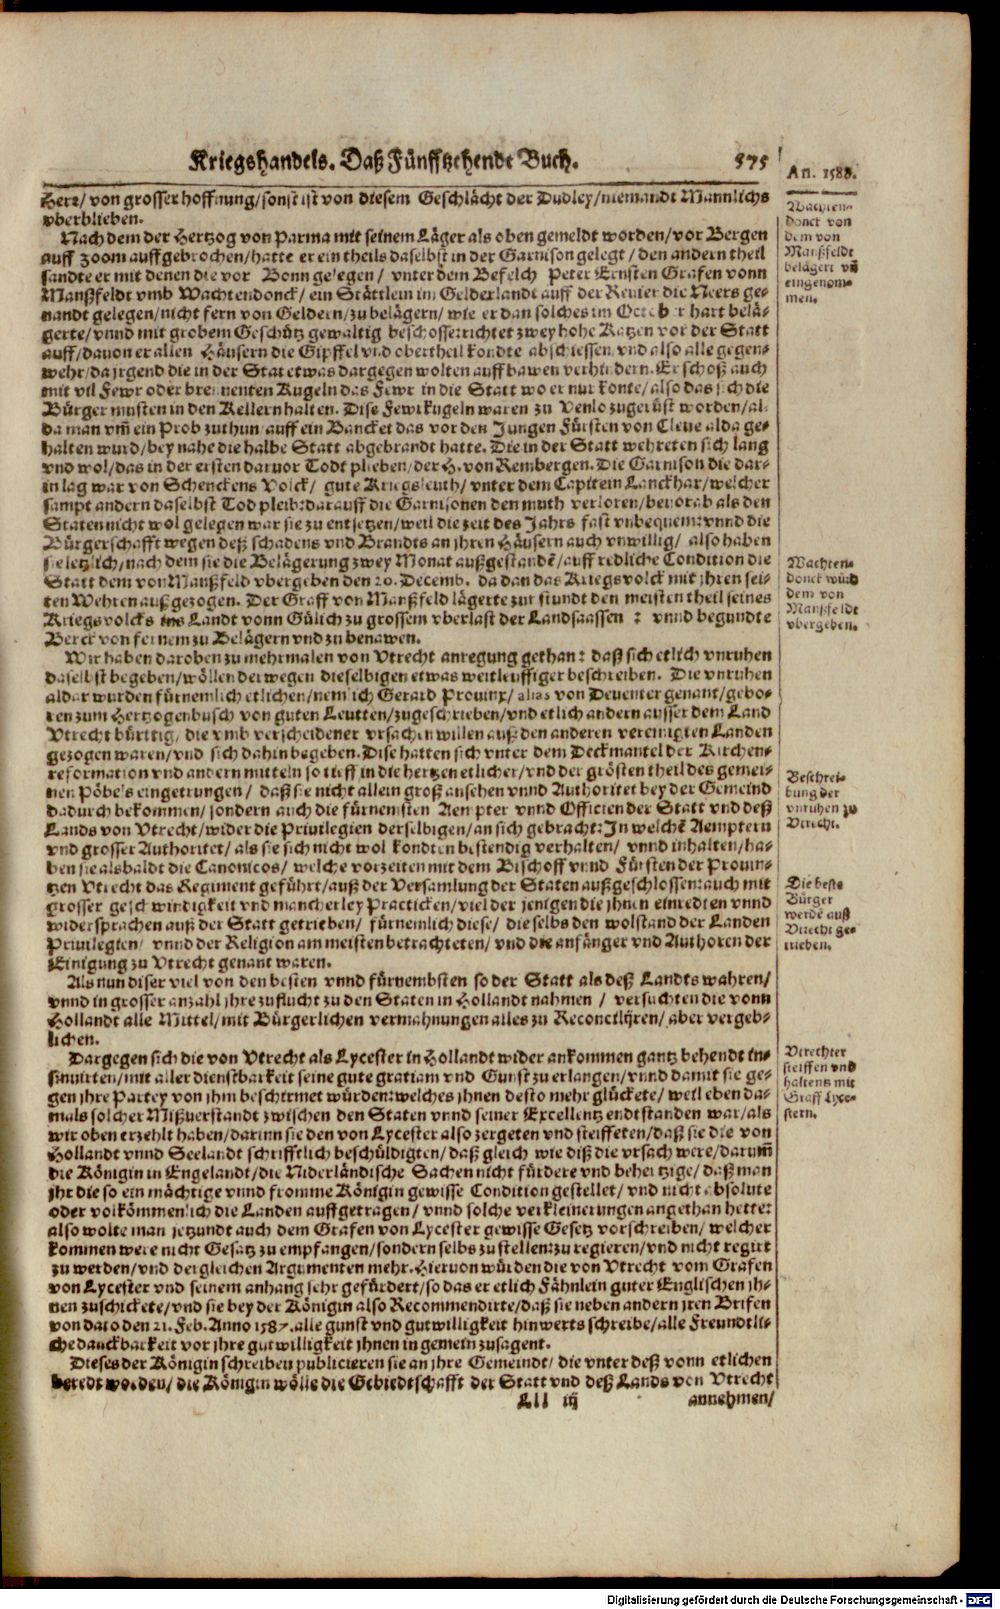 Kriegshandels. Daß Fünfftzehende Buch. 575
An. 1588.
Herr/ von grosser hoffnung/ sonst ist von diesem Geschlächt der Dudley/ niemandt Mannlichs
vberblieben.
Nach dem der Hertzog von Parma mit seinem Läger als oben gemeldt worden/ vor Bergen
auff Zoom auffgebrochen/ hatte er ein theils daselbst in der Garnison gelegt/ den andern theil
sandte er mit denen die vor Bonn gelegen/ vnter dem Befelch Peter Ernsten Grafen vonn
Manßfeldt vmb Wachtendonck/ ein Stättlein im Gelderlandt auff der Reuier die Neers ge-
nandt gelegen/ nicht fern von Geldern/ zu belägern/ wie er dan solches im October hart belä-
gerte/ vnnd mit grobem Geschütz gewaltig beschosse: richtet zwey hohe Katzen vor der Statt
auff/ dauon er allen Häusern die Gipffel vnd obertheil kondte abschiessen/ vnd also alle gegen-
wehr/ da jrgend die in der Stat etwas dargegen wolten auffbawen verhindern. Er schoß auch
mit vil Fewr oder brennenten Kugeln das Fewr in die Statt wo er nur konte/ also das sich die
Bürger musten in den Kellern halten. Dise Fewrkugeln waren zu Venlo zugerüst worden/ al-
da man vm̃ ein Prob zuthun/ auff ein Bancket das vor den Jungen Fürsten von Cleue alda ge-
halten wurd/ bey nahe die halbe Statt abgebrandt hatte. Die in der Statt wehreten sich lang
vnd wol/ das in der ersten daruor Todt plieben/ der H. von Rembergen. Die Garnison die dar-
in lag war von Schenckens Volck/ gute Kriegsleuth/ vnter dem Capitein Lanckhar/ welcher
sampt andern daselbst Tod pleib: darauff die Garnisonen den muth verloren/ beuorab als den
Staten nicht wol gelegen war sie zu entsetzen/ weil die zeit des Jahrs fast vnbequem: vnnd die
Bürgerschafft wegen deß schadens vnd Brandts an jhren Häusern auch vnwillig/ also haben
sie letzlich/ nach dem sie die Belägerung zwey Monat außgestandẽ/ auff redliche Condition die
Statt dem von Manßfeld vbergeben den 20. Decemb. da dan das Kriegsvolck mit jhren sei-
ten Wehren außgezogen. Der Graff von Manßfeld lägerte zur stundt den meisten theil seines
Kriegsvolcks ins Landt vonn Gülich zu grossem vberlast der Landsaassen : vnnd begundte
Berck von fernem zu Belägern vnd zu benawen.
Wir haben daroben zu mehrmalen von Vtrecht anregung gethan: daß sich etlich vnruhen
daselbst begeben/ wöllen derwegen dieselbigen etwas weitleuffiger beschreiben. Die vnruhen
aldar wurden fürnemlich etlichen/ nemlich Gerard Prouinx/ alias von Deuenter genant/ gebo-
ren zum Hertzogenbusch von guten Leutten/ zugeschrieben/ vnd etlich andern ausser dem Land
Vtrecht bürttig/ die vmb verscheidener vrsachen willen auß den anderen vereinigten Landen
gezogen waren/ vnd sich dahin begeben. Dise hatten sich vnter dem Deckmantel der Kirchen-
reformation vnd andern mitteln so tieff in die hertzen etlicher/ vnd der grösten theil des gemei-
nen Pöbels eingetrungen/ daß sie nicht allein groß ansehen vnnd Authoritet bey der Gemeind
dadurch bekommen/ sondern auch die fürnemsten Aempter vnnd Officien der Statt vnd deß
Lands von Vtrecht/ wider die Priuilegien derselbigen/ an sich gebracht: In welchẽ Aemptern
vnd grosser Authoritet/ als sie sich nicht wol kondten bestendig verhalten/ vnnd inhalten/ ha-
ben sie alsbaldt die Canonicos/ welche vorzeiten mit dem Bischoff vnnd Fürsten der Prouin-
tzen Vtrecht das Regiment geführt/ auß der Versamlung der Staten außgeschlossen: auch mit
grosser geschwindigkeit vnd mancherley Practicken/ viel der jenigen die jhnen einredten vnnd
widersprachen auß der Statt getrieben/ fürnemlich diese/ die selbs den wolstand der Landen
Priuilegien/ vnnd der Religion am meisten betrachteten/ vnd die anfänger vnd Authoren der
Einigung zu Vtrecht genant waren.
Als nun diser viel von den besten vnnd fürnembsten so der Statt als deß Landts wahren/
vnnd in grosser anzahl jhre zuflucht zu den Staten in Hollandt nahmen/ versuchten die vonn
Hollandt alle Mittel/ mit Bürgerlichen vermahnungen alles zu Reconcilijren/ aber vergeb-
lichen.
Dargegen sich die von Vtrecht als Lycester in Hollandt wider ankommen gantz behendt in-
sinuirten/ mit aller dienstbarkeit seine gute gratiam vnd Gunst zu erlangen/ vnnd damit sie ge-
gen jhre Partey von jhm beschirmet würden: welches jhnen desto mehr glückete/ weil eben da-
mals solcher Mißuerstandt zwischen den Staten vnnd seiner Excellentz endtstanden war/ als
wir oben erzehlt haben/ darinn sie den von Lycester also zergeten vnd steiffeten/ daß sie die von
Hollandt vnnd Seelandt schrifftlich beschüldigten/ daß gleich wie diß die vrsach were/ darum̃
die Königin in Engelandt/ die Niderländische Sachen nicht fürdere vnd behertzige/ daß man
jhr die so ein mächtige vnnd fromme Königin gewisse Condition gestellet/ vnd nicht absolute
oder volkömmenlich die Landen auffgetragen/ vnnd solche verkleinerungen angethan hette:
also wolte man jetzundt auch dem Grafen von Lycester gewisse Gesetz vorschreiben/ welcher
kommen were nicht Gesatz zu empfangen/ sondern selbs zu stellen: zu regieren/ vnd nicht regirt
zu werden/ vnd dergleichen Argumenten mehr. Hieruon würden die von Vtrecht vom Grafen
von Lycester vnd seinem anhang sehr gefürdert/ so das er etlich Fähnlein guter Englischen jh-
nen zuschickete/ vnd sie bey der Königin also Recommendirte/ daß sie neben andern jren Brifen
von dato den 21. Feb. Anno 1587. alle gunst vnd gutwilligkeit hinwerts schreibe/ alle Freundtli-
che danckbarkeit vor jhre gutwilligkeit jhnen in gemein zusagent.
Dieses der Königin schreiben publicieren sie an jhre Gemeindt/ die vnter deß vonn etlichen
beredt worden/ die Königin wölle die Gebiedtschafft der Statt vnd deß Lands von Vtrecht
Lll iij annehmen/
Wachten-
donck von
dem von
Manßfeldt
belägert vñ
eingenom-
men.
Wachten-
donck würd
dem von
Manßfeldt
vbergeben.
Beschrei-
bung der
vnruhen zu
Vtrecht.
Die beste
Bürger
werdẽ auß
Vtrecht ge-
trieben.
Vtrechter
steiffen vnd
haltens mit
Graff Lyce-
stern.
Digitalisierung gefördert durch die Deutsche Forschungsgemeinschaft - DFG